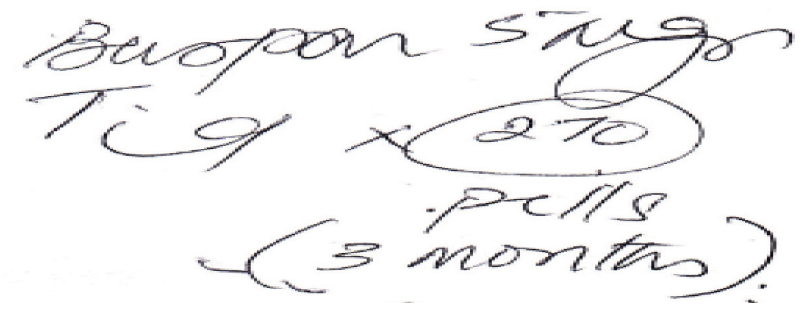 Buspar 5mg
Tid x 270
pills
(3 months).